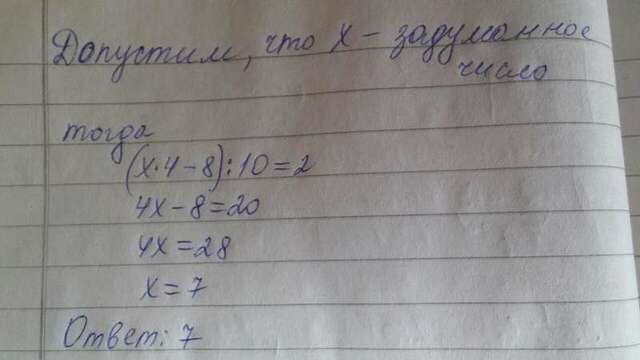 Допустим, что х - задуманное
число
тогда
(х·4-8):10=2
4х-8=20
4х=28
х=7
Ответ: 7